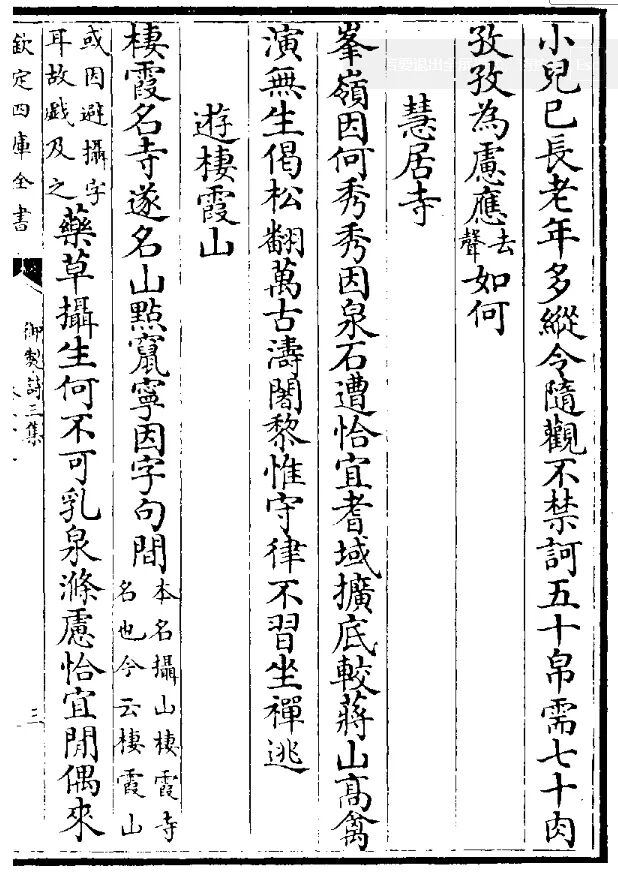 小兒已長老年多縱令隨觀不禁訶五十帛需七十肉
孜孜為慮應去聲如何
慧居寺
峯嶺因何秀秀因泉石遭恰宜耆域擴底較蔣山高禽
演無生偈松翻萬古濤闍黎惟守律不習坐禪逃
遊棲霞山
棲霞名寺遂名山點竄寧因字句間本名攝山棲霞寺
名也今云棲霞山
或因避攝字
耳故戯及之藥草攝生何不可乳泉滌慮恰宜閒偶來
欽定四庫全書
御製詩三集
三